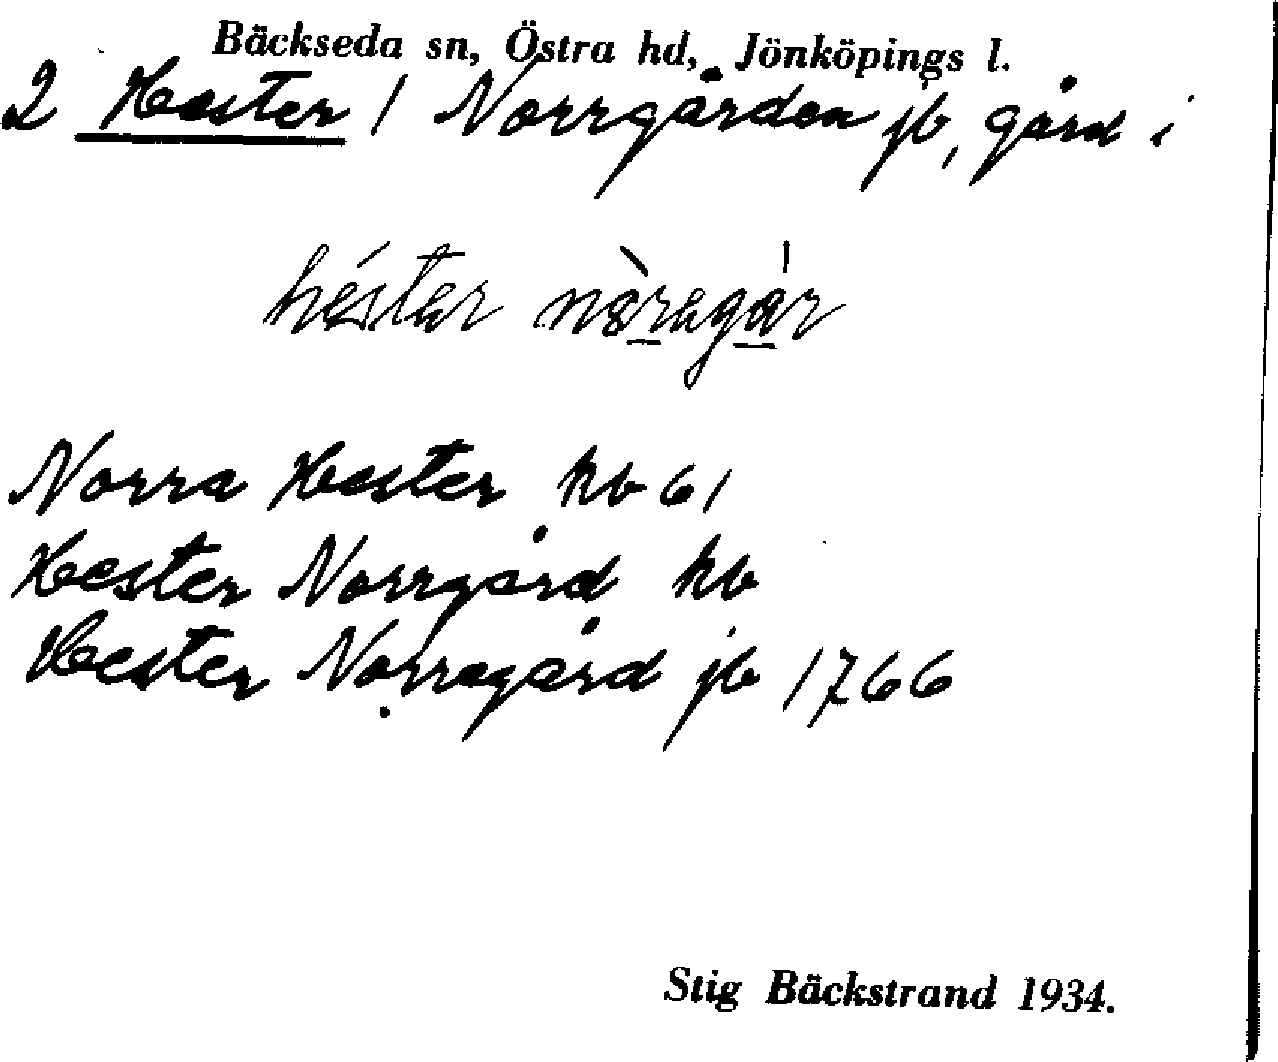 Bäckseda sn, Östra hd, Jönköpings l.
2 Hester / Norrgården jb, gård i
héster nòregår
Norra Hester hb 61
Hester Norrgård hb
Hester Norregård jb 1766
Stig Bäckstrand 1934.